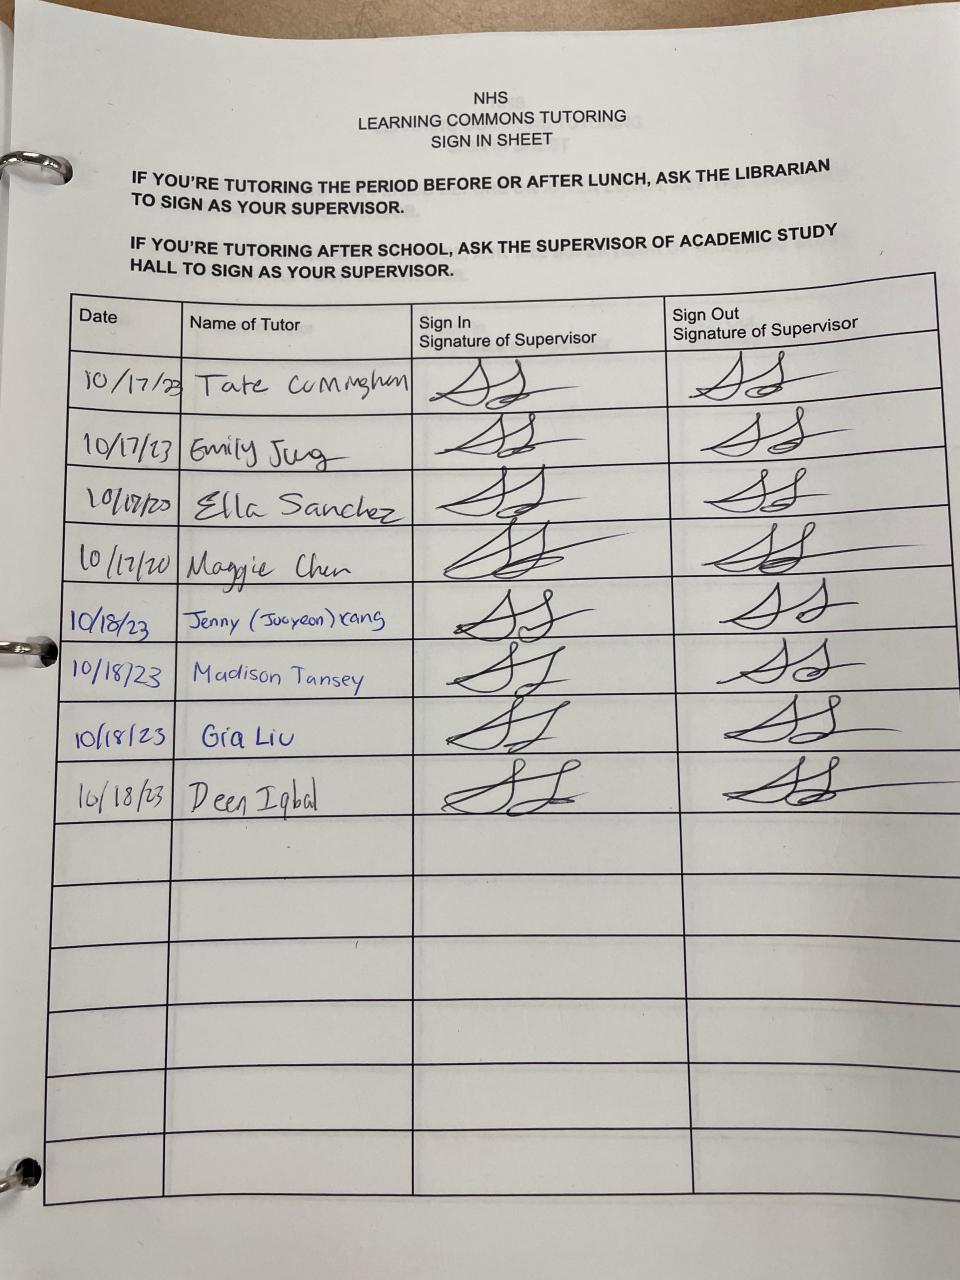 NHS
LEARNING COMMONS TUTORING
SIGN IN SHEET
IF YOU'RE TUTORING THE PERIOD BEFORE OR AFTER LUNCH, ASK THE LIBRARIAN
TO SIGN AS YOUR SUPERVISOR.
IF YOU'RE TUTORING AFTER SCHOOL, ASK THE SUPERVISOR OF ACADEMIC STUDY
HALL TO SIGN AS YOUR SUPERVISOR.
Date Name of Tutor Sign In Signature of Supervisor Sign Out Signature of Supervisor
10/17/23 Tate
10/17/23 Emily Jung
10/17/20 Ella Sanchez
10/17/20 Maggie Chen
10/18/23 Jenny (Jooyeon) Kang
10/18/23 Madison Tansey
10/18/23 Gia Liu
10/18/23 Deen Iqbal